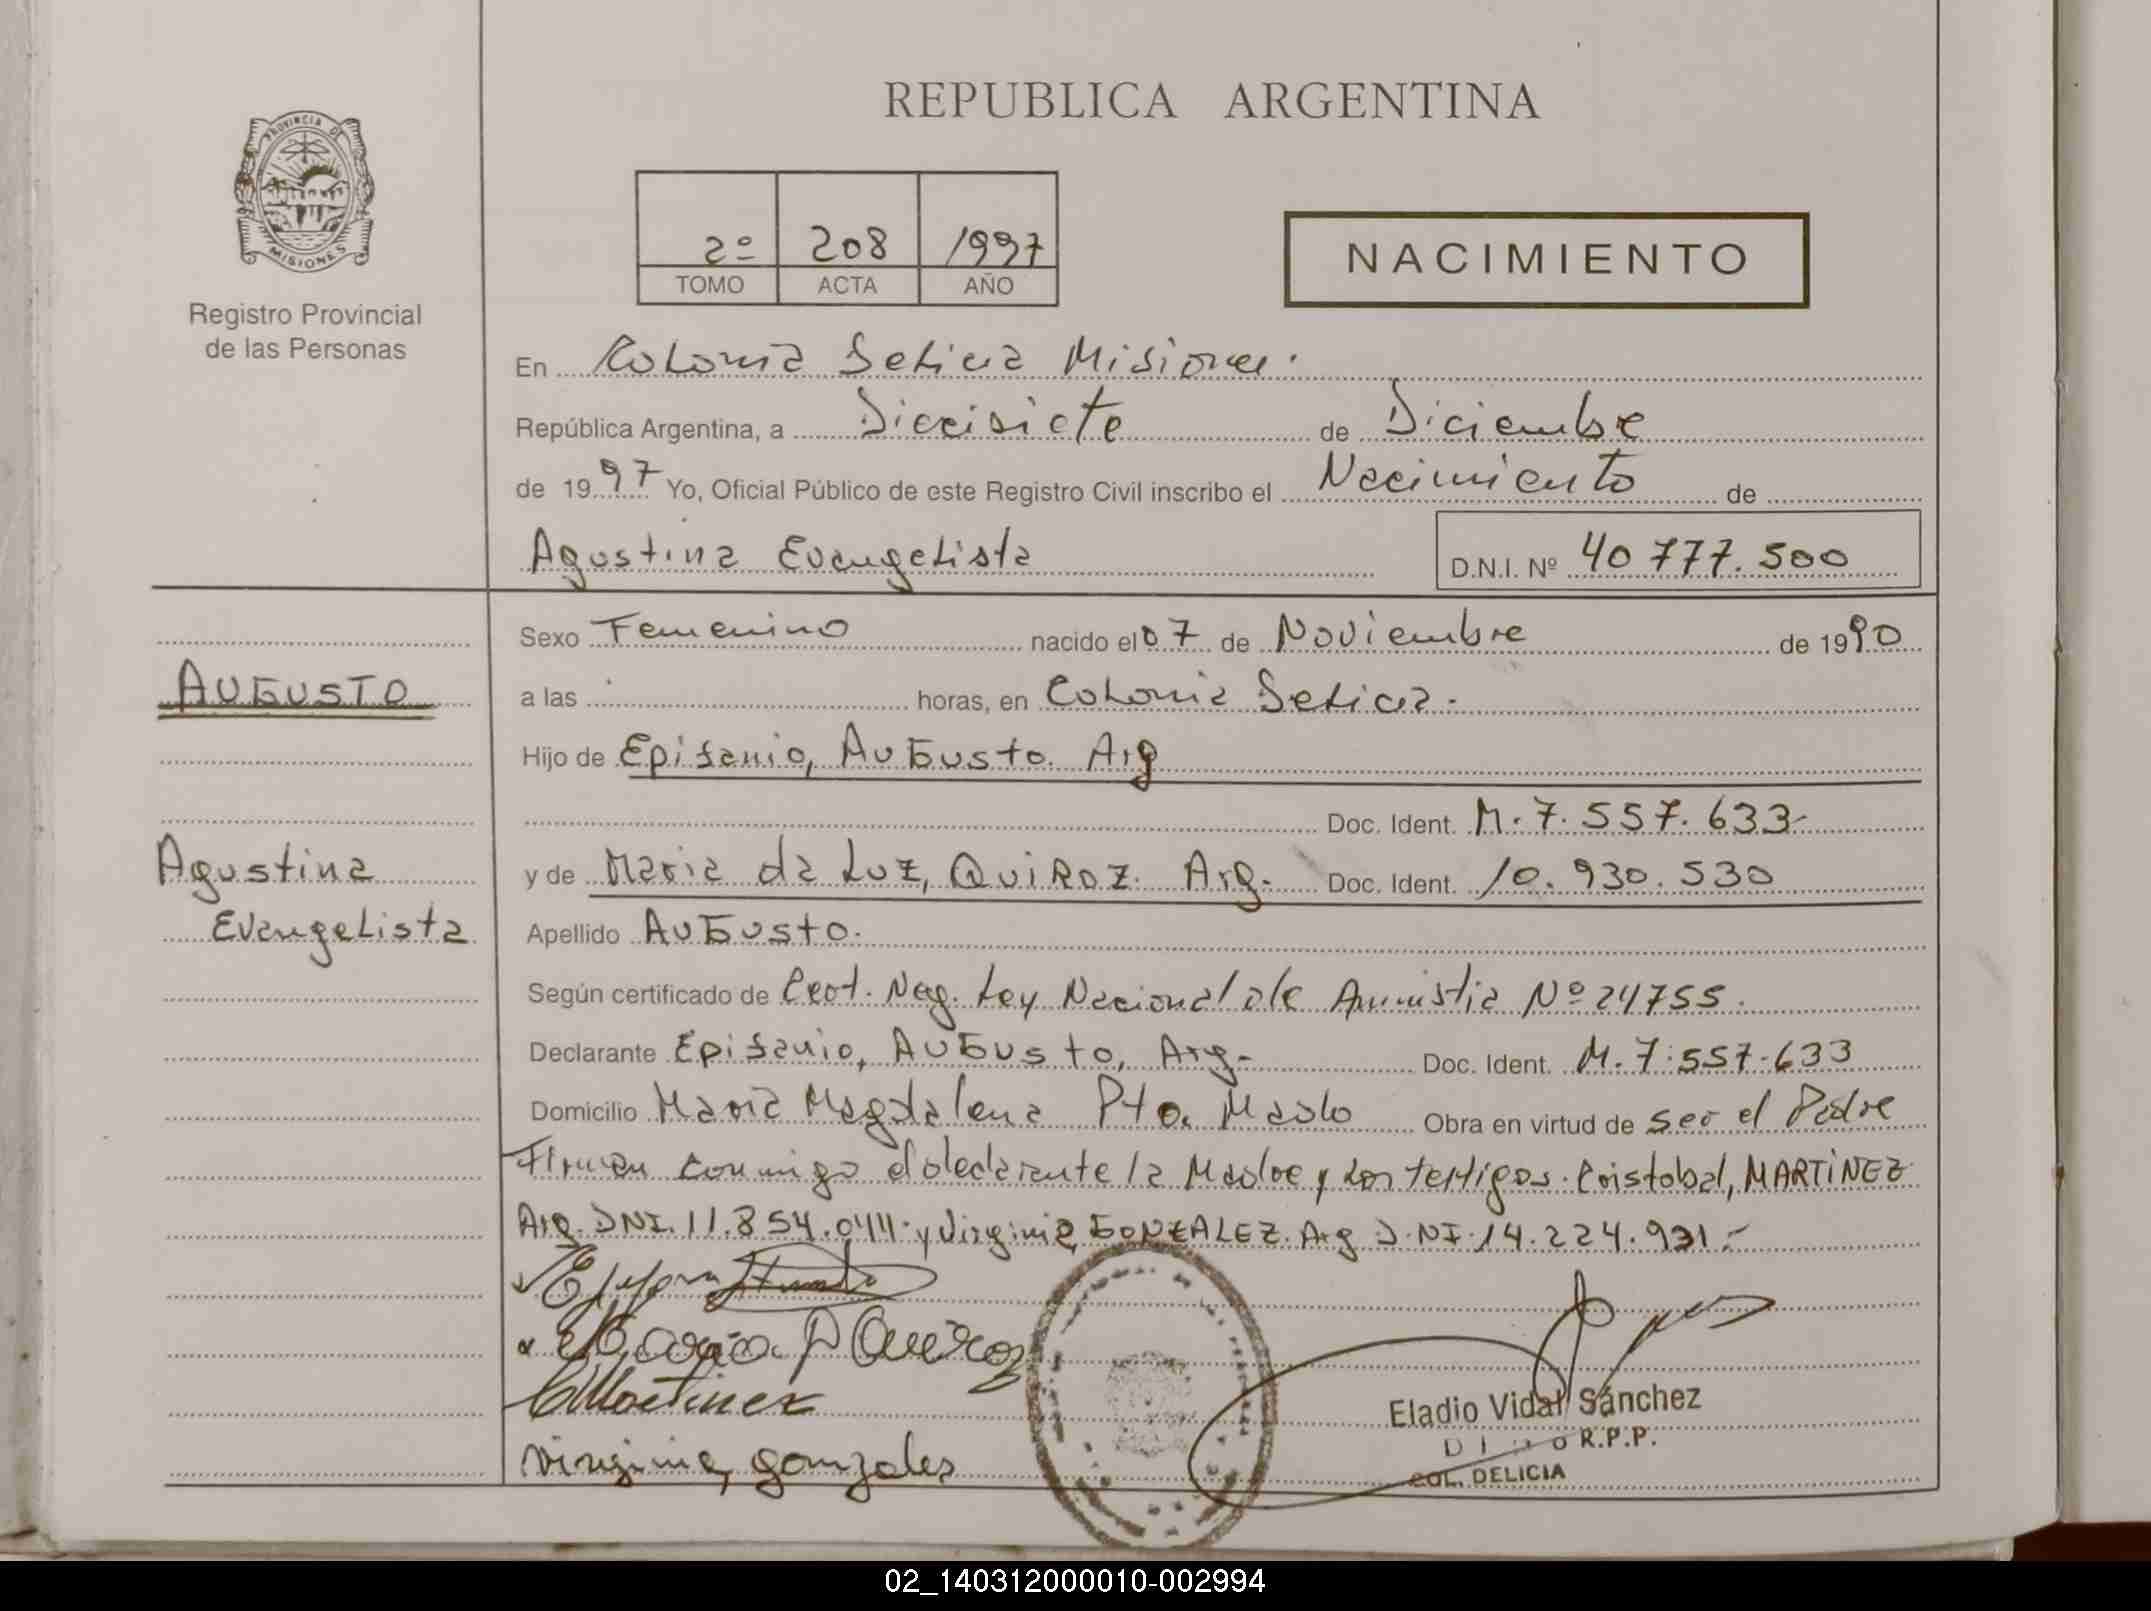 REPUBLICA ARGENTINA
PROVINCIA DE
MISIONES
Registro Provincial
de las Personas
2º 208 1997
TOMO ACTA AÑO
NACIMIENTO
En Colonia Delicia Misiones.
República Argentina, a Diecisiete de Diciembre
de 1997 Yo, Oficial Público de este Registro Civil inscribo el Nacimiento de
Agustina Evangelista D.N.I. Nº 40 777.500
Sexo Femenino nacido el 07 de Noviembre de 1990
AUGUSTO
a las horas, en Colonia Delicia.
Hijo de Epifanio, AuGusto. Arg
Doc. Ident. M. 7. 557. 633-
Agustina
y de Maria da Luz, QUiROZ. Arg. Doc. Ident. 10. 930. 530
Evangelista
Apellido AuGusto.
Según certificado de Cert. Neg. Ley Nacional de Amnistia Nº 24755.
Declarante Epifanio, AUGusto, Arg.- Doc. Ident. M. 7.557.633
Domicilio Maria Magdalena Pto. Mado Obra en virtud de ser el Padre
Firman conmigo el declarante la Madre y dos testigos. Cristobal, MARTiNEZ
Arg. DNI. 11.854.044. y Virginia GONZALEZ. Arg D.NI.14.224.931.-
Maria D Queiroz
CMartinez
virginia, gonzales
Eladio Vidal Sánchez
R.P.P.
COL. DELICIA
02_140312000010-002994